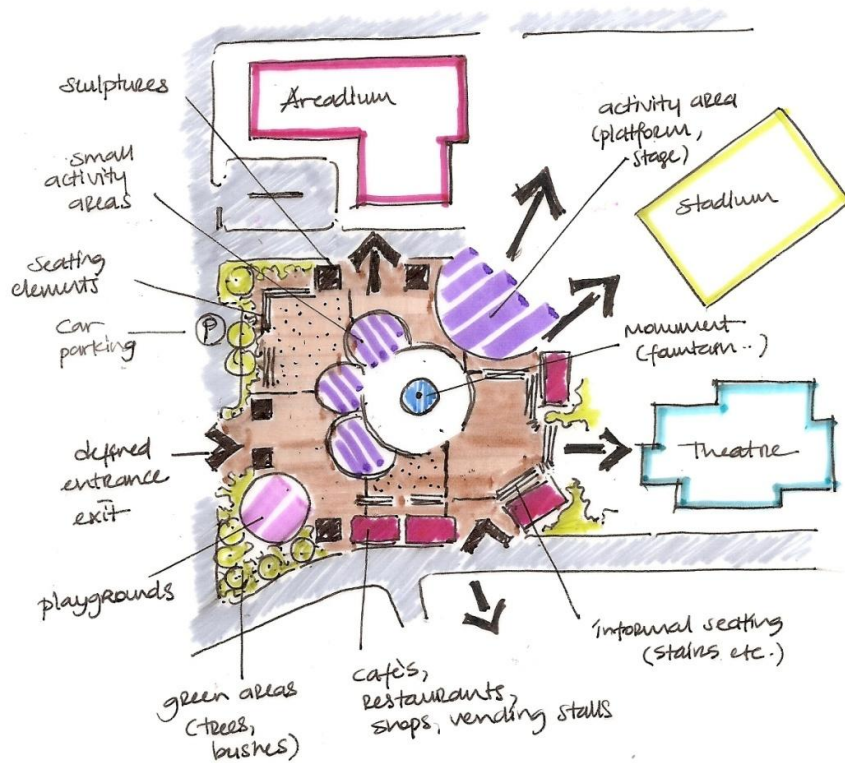 sculptures
Arcadium
activity area
(platform,
stage)
small
activity
areas
stadium
seating
elements
car
parking
P
monument
(fountain..)
defined
entrance
exit
Theatre
playgrounds
informal seating
(stairs etc.)
green areas
(trees,
bushes)
cafe's,
restaurants,
shops, vending stalls